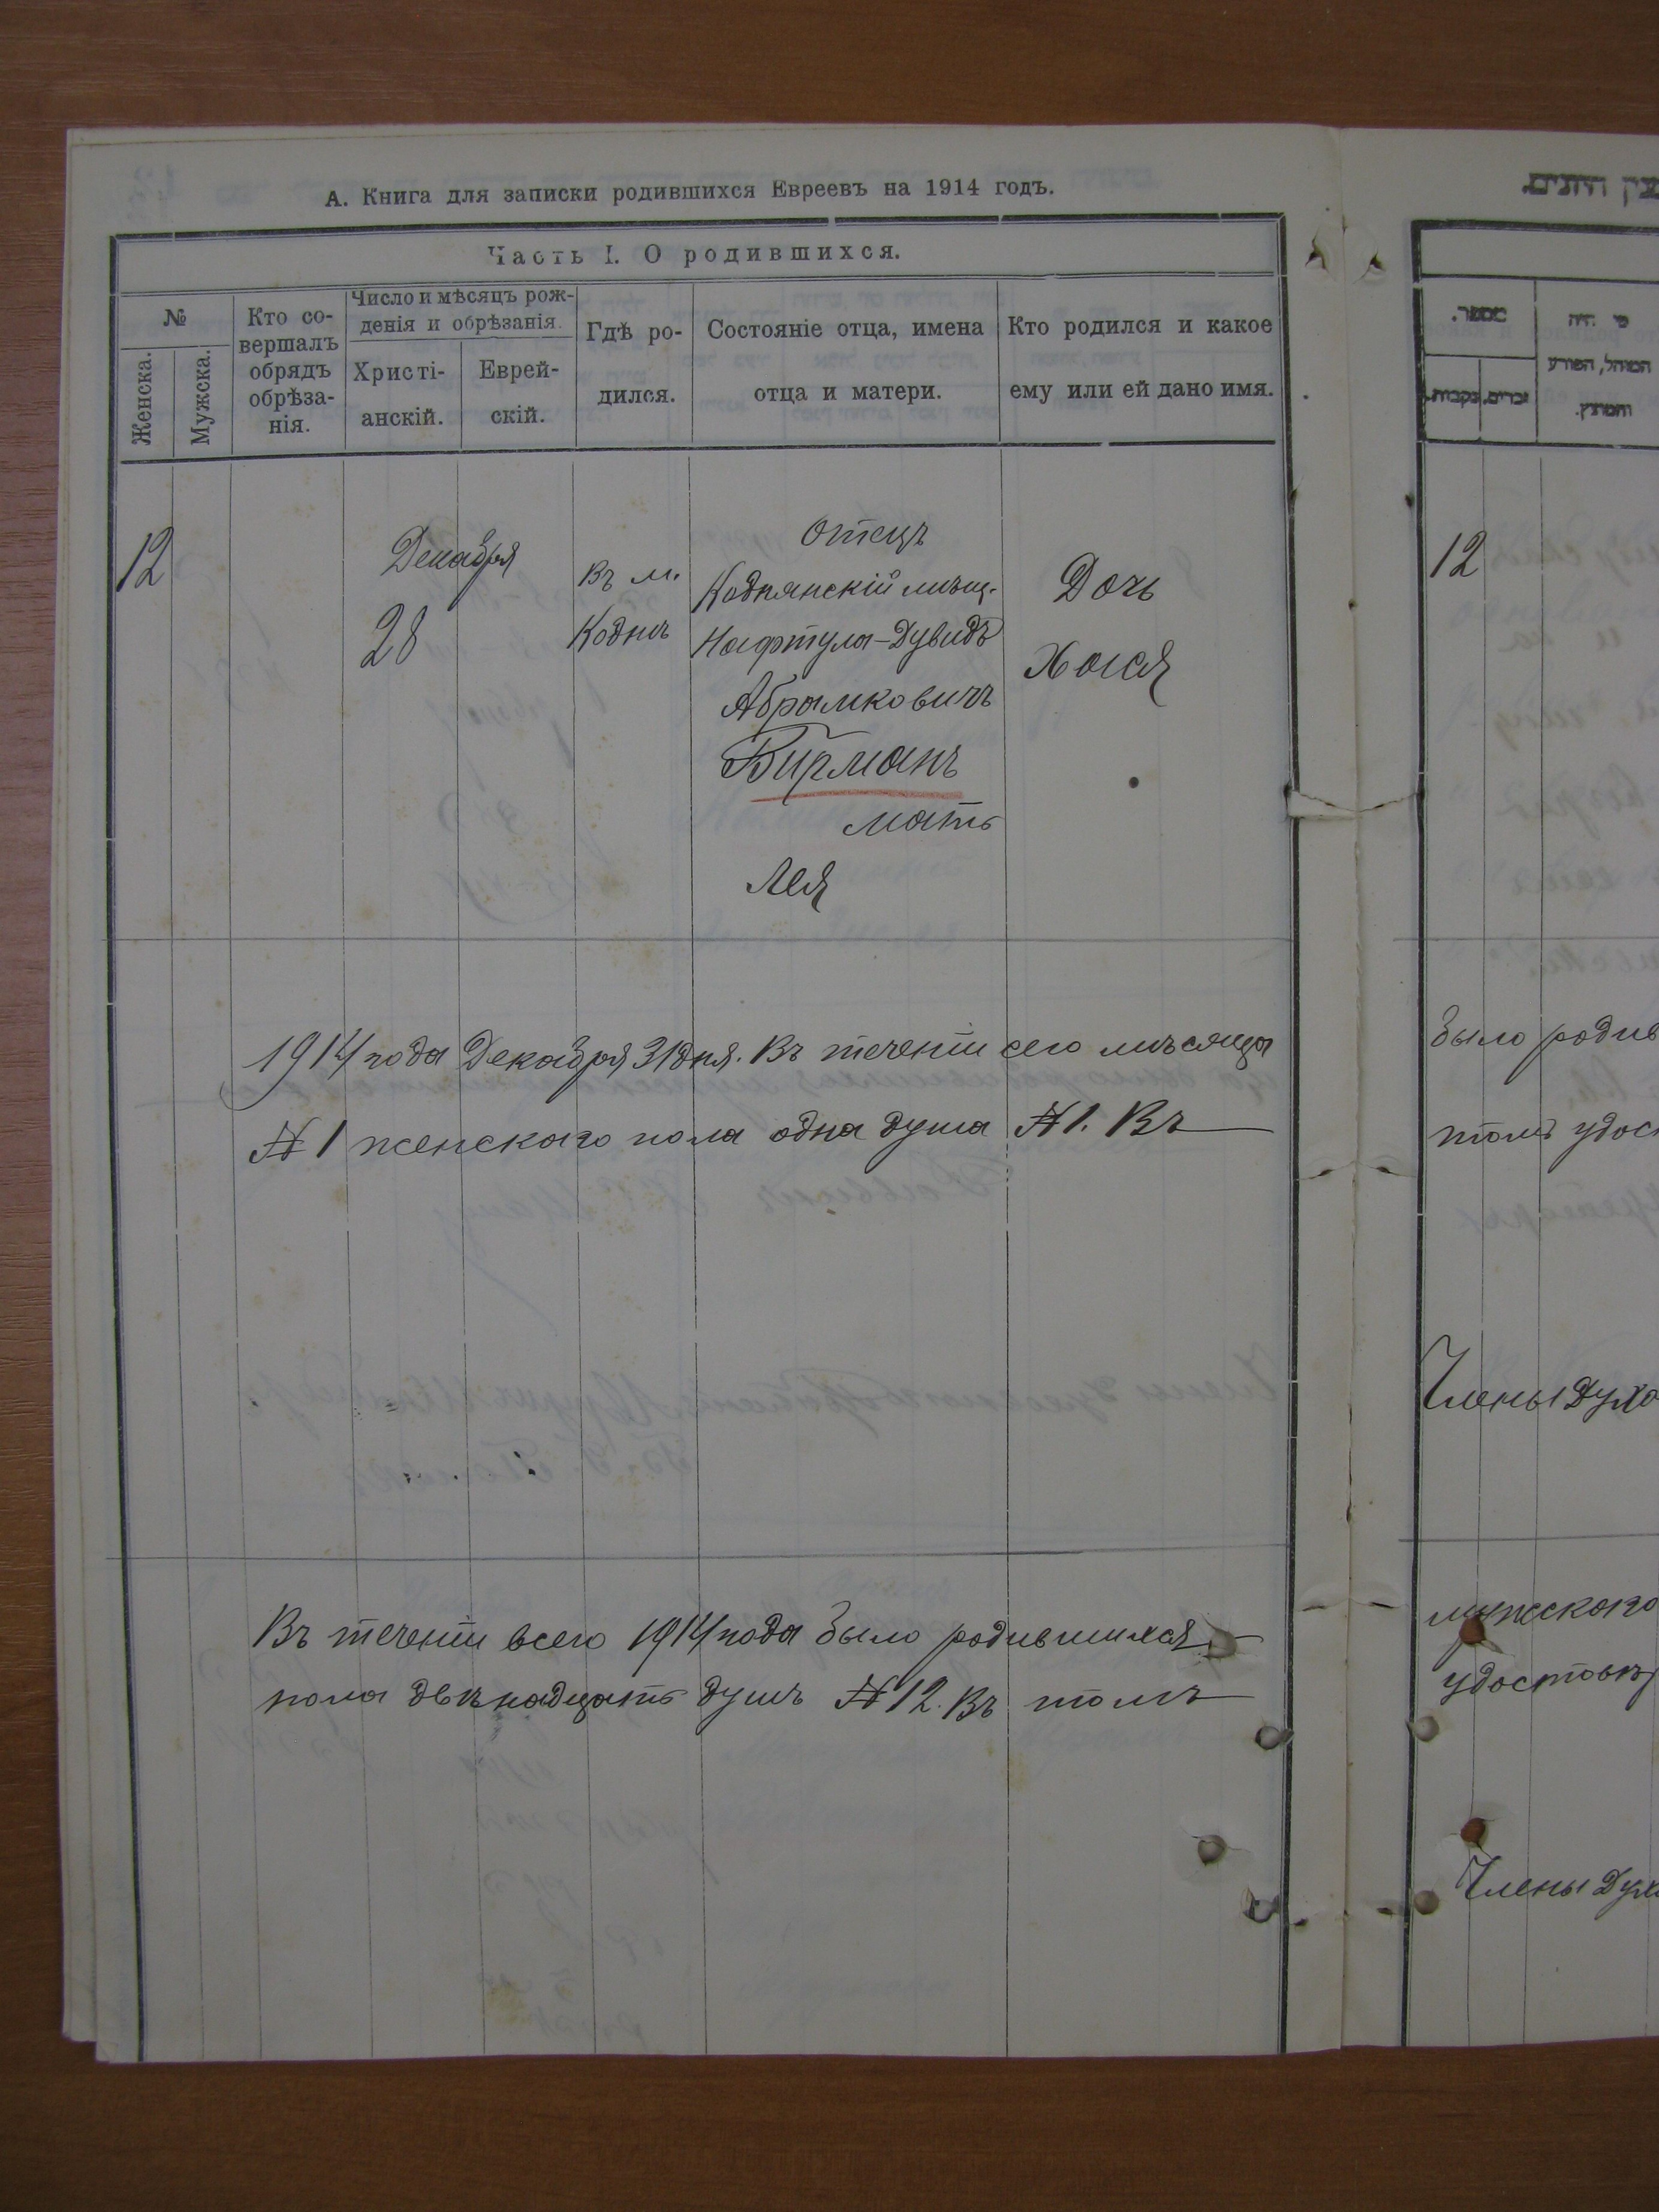 А. Книга для записки родившихся Евреевъ на 1914 годъ.
Часть I. О родившихся.
№
Женска.
Мужска.
Кто со-
вершалъ
обрядъ
обрѣза-
нія.
Число и мѣсяцъ рож-
денія и обрѣзанія.
Христі-
анскій.
Еврей-
скій.
Гдѣ ро-
дился.
Состояніе отца, имена
отца и матери.
Кто родился и какое
ему или ей дано имя.
12
Декабря
28
въ м.
Коднѣ
Отецъ
Коднянскій мѣщ.
Нафтула-Дувидъ
Абрамковичъ
Бирманъ
мать
Лея
Дочь
Хася
1914 года Декабря 31 дня. Въ теченіи сего мѣсяца
№ 1 женскаго пола одна душа № 1. Въ
Въ теченіи всего 1914 года было родившихся
пола двѣнадцать душъ № 12. Въ томъ
מספר.
זכרים.
נקבות.
מי היה
המוהל, הפורע
והמוצץ.
12
было родив
томъ удос
Члены Духо
мужскаго
удостовѣр
Члены Духо